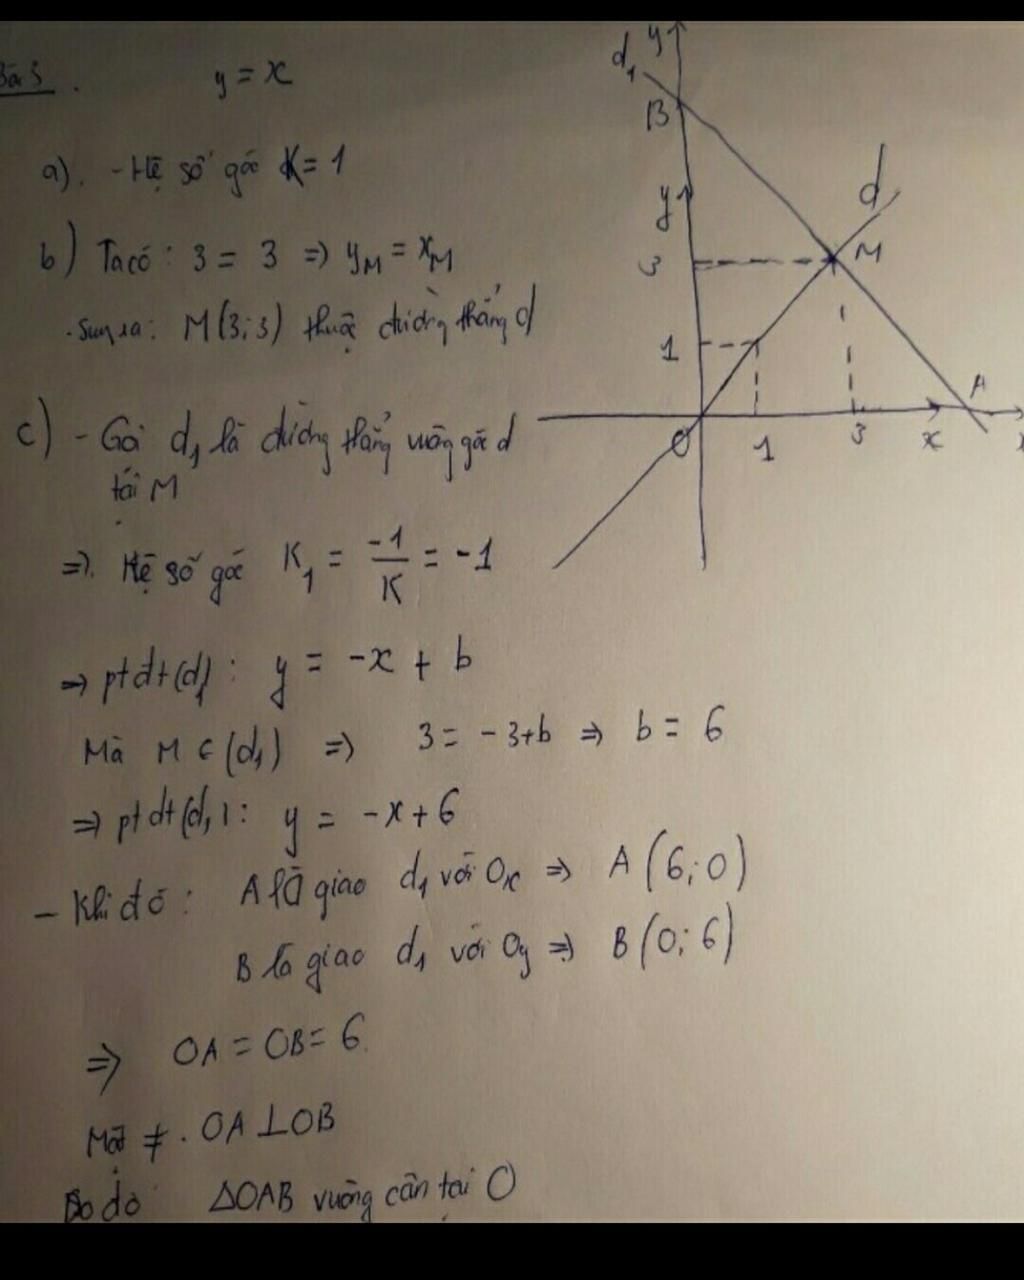 Bài 3. y = x
a). - Hệ số góc K = 1
b) Ta có : 3 = 3 => yM = xM
. Suy ra : M(3;3) thuộc đường thẳng d
c) - Gọi d1 là đường thẳng vuông góc d
tại M
=>. Hệ số góc K1 = -1/K = -1
=> ptđt(d1) : y = -x + b
Mà M ∈ (d1) => 3 = -3+b => b = 6
=> ptđt(d1) : y = -x + 6
- Khi đó : A là giao d1 với Ox => A(6;0)
B là giao d1 với Oy => B(0;6)
=> OA = OB = 6.
Mặt ≠ . OA ⊥ OB
Do đó ΔOAB vuông cân tại O
y
d1
B
y
d
3
M
1
A
O
1
3
x